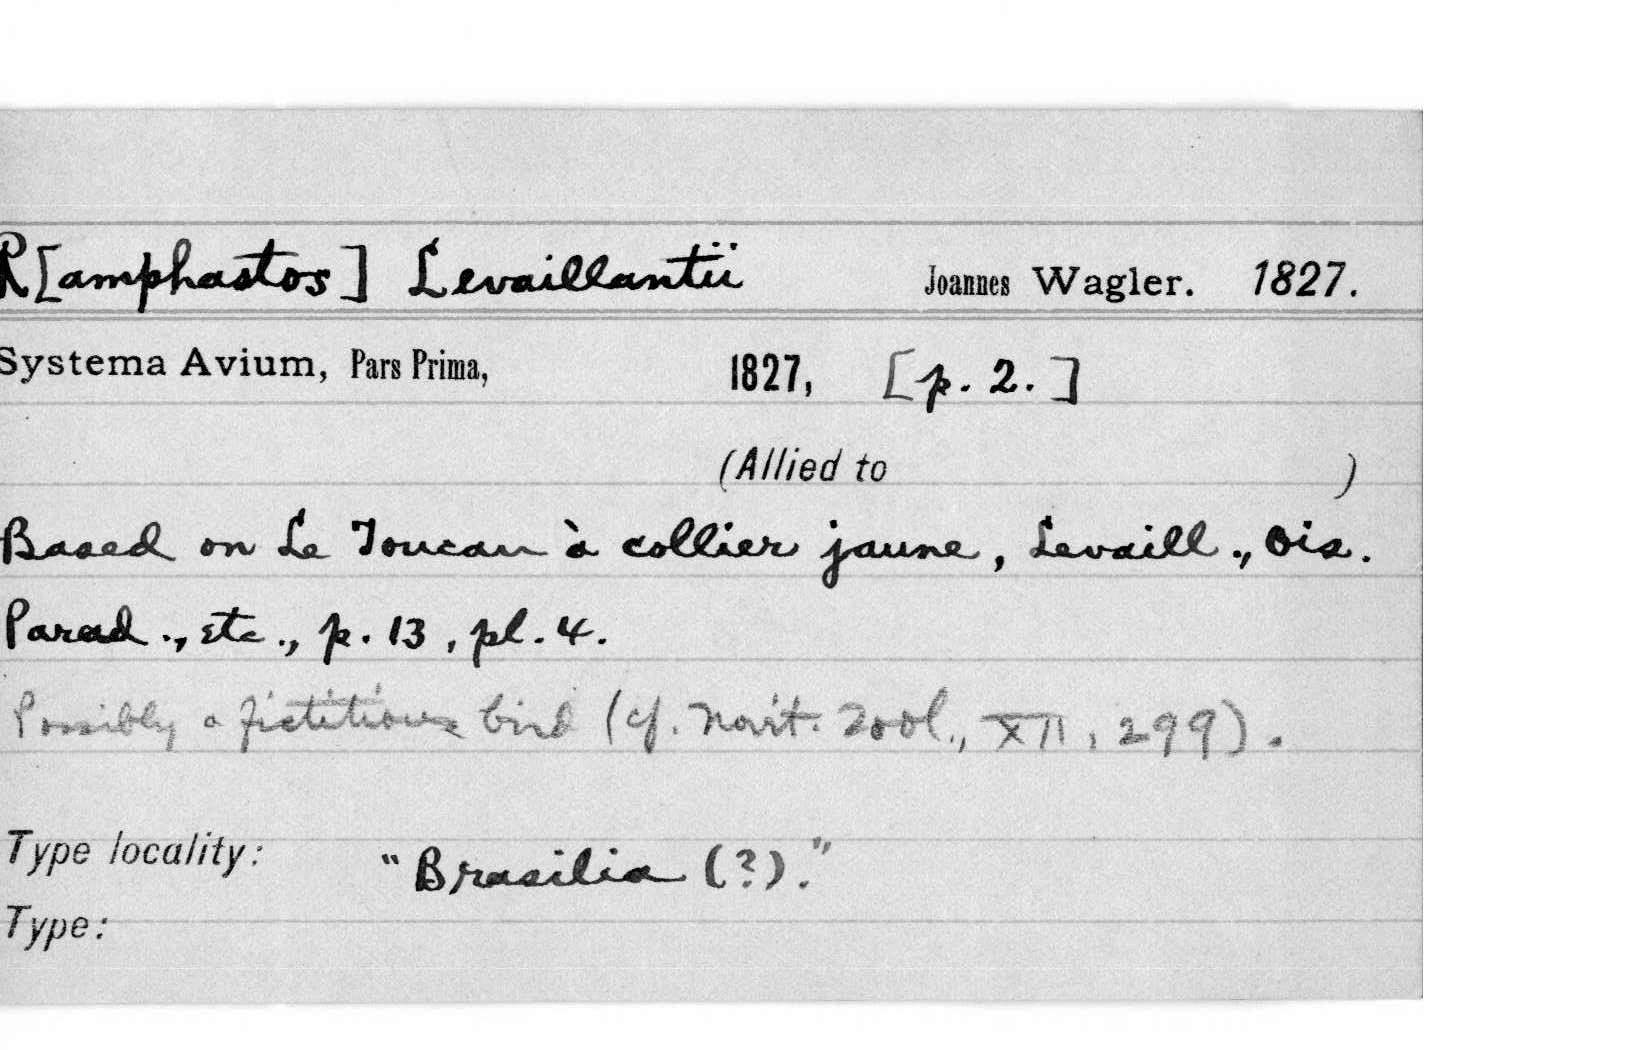 R[amphastos] Levaillantii Joannes Wagler. 1827.
Systema Avium, Pars Prima, 1827, [p. 2.]
(Allied to )
Based on Le Toucan à collier jaune, Levaill., Ois.
Parad., etc., p. 13, pl. 4.
Possibly a fictitious bird (cf. Novit. Zool., XII, 299).
Type locality: "Brasilia (?)."
Type: